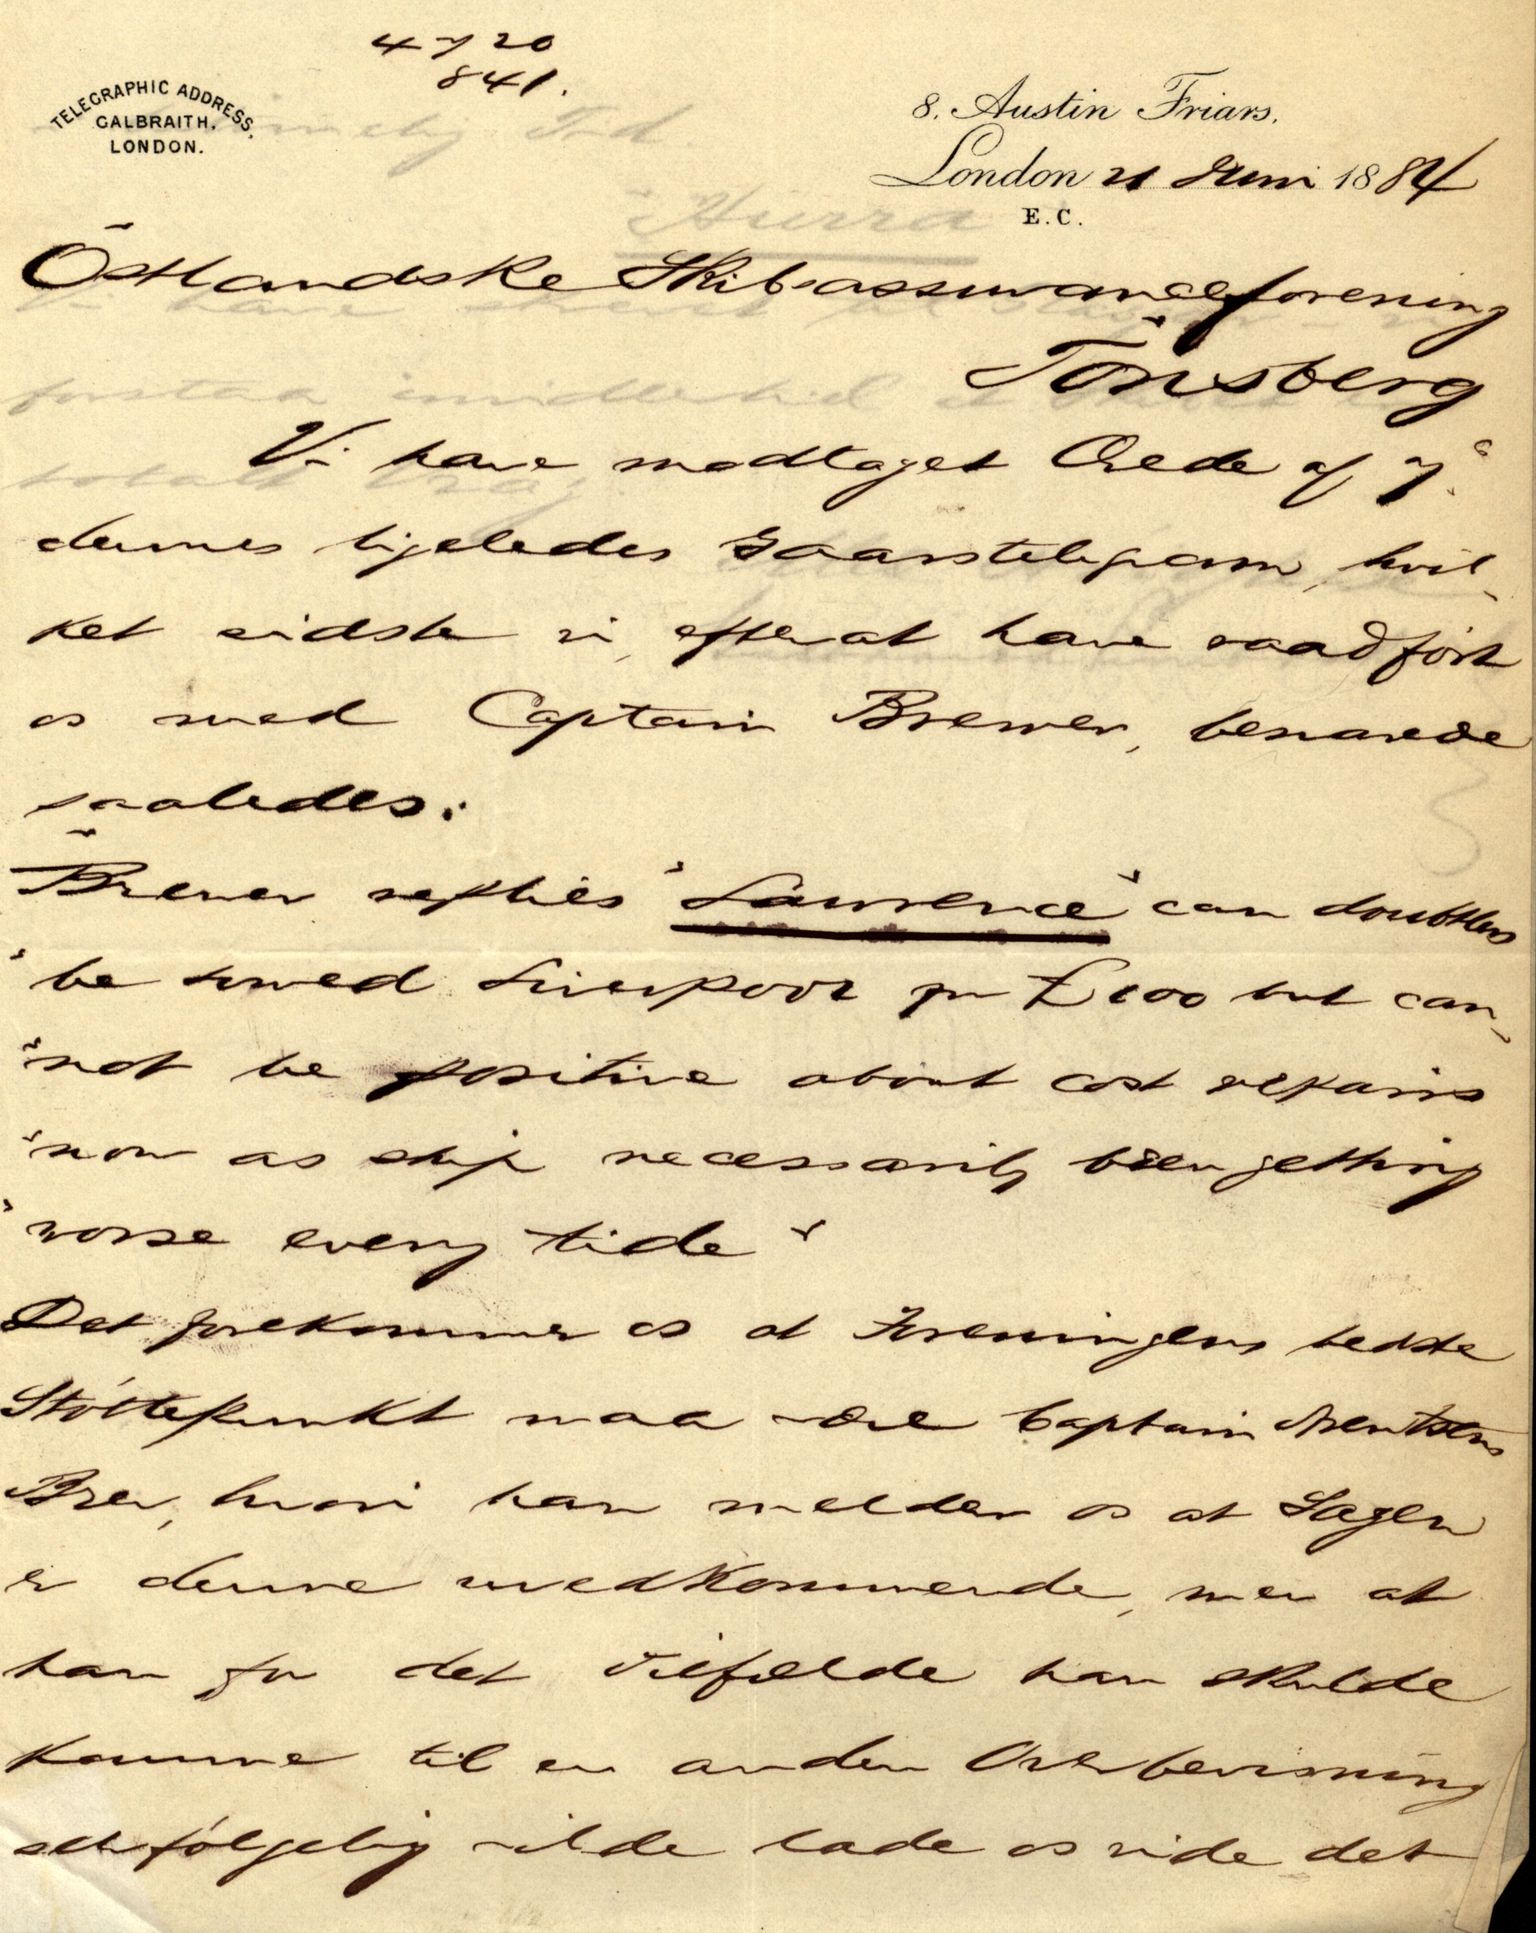 4720
841.
TELEGRAPHIC ADDRESS,
GALBRAITH,
LONDON.
8, Austin Friars,
London 21 Juni 1884
E.C.
Östlandske Skibsassuranceforening
Tönsberg
Vi have modtaget Ærede af 17.
dennes ligeledes Gaarstelegram, hvil-
ket sidste vi, efterat have raadfört
os med Captain Brewer, besvarede
saaledes:
"Brewer replies "Lawrence" can doubtless
"be towed Liverpool for £100 but can-
"not be positive about cost repairs
"now as ship necessarily been getting
"worse every tide"
Det forekommer os at Foreningens bedste
Støttepunkt maa være Captain Arentsens
Brev, hvori han melder os at Sagen
er denne uvedkommende, men at
han for det Tilfælde han skulde
komme til en anden Overbevisning
selvfølgelig vilde lade os vide det